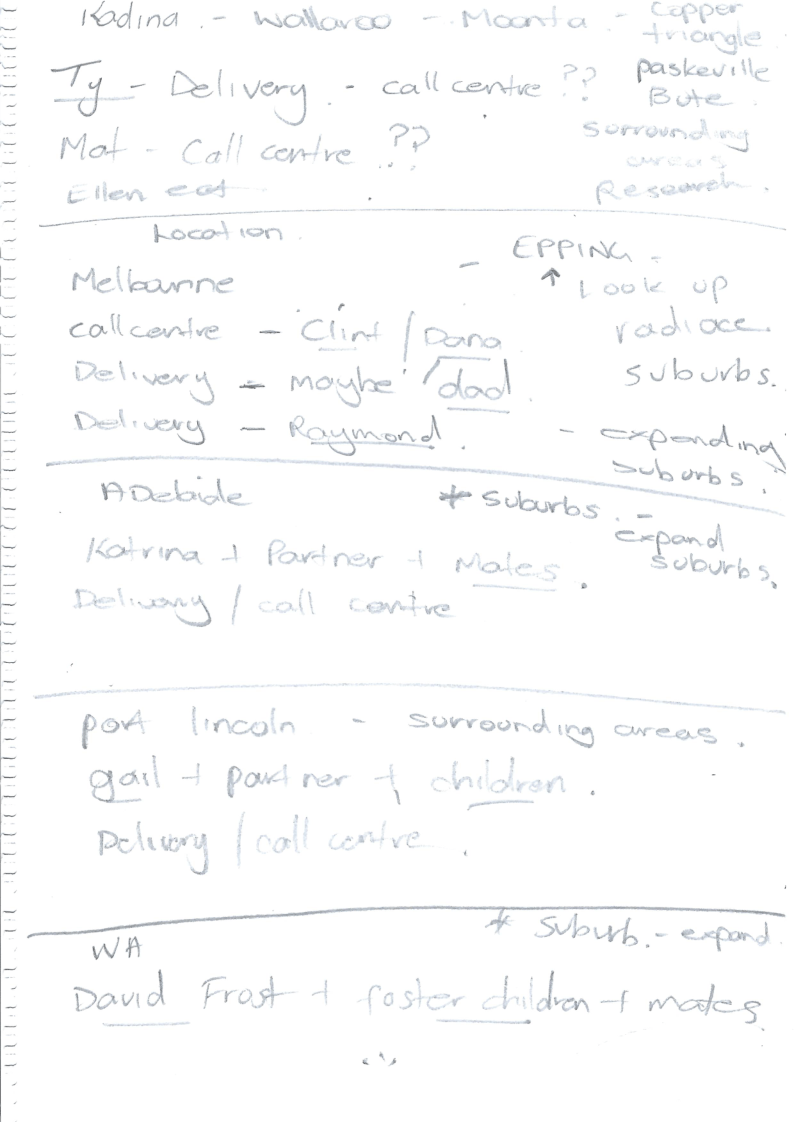 Kadina - Wallaroo - Moonta - Copper triangle
Ty - Delivery - call centre ?? paskeville Bute
Mat - Call centre ?? Surrounding areas
Ellen eat Research.
Location
Melbourne - EPPING -
↑ Look up
callcentre - Clint / Dana radiace.
Delivery - maybe / dad suburbs.
Delivery - Raymond. - expanding suburbs.
ADelaide * suburbs. - Expand suburbs.
Katrina + Partner + Mates.
Delivary / call centre
port lincoln - surrounding areas.
gail + partner + children.
Delivery / call centre.
* Suburb. - expand
WA
David Frost + foster children + mates.